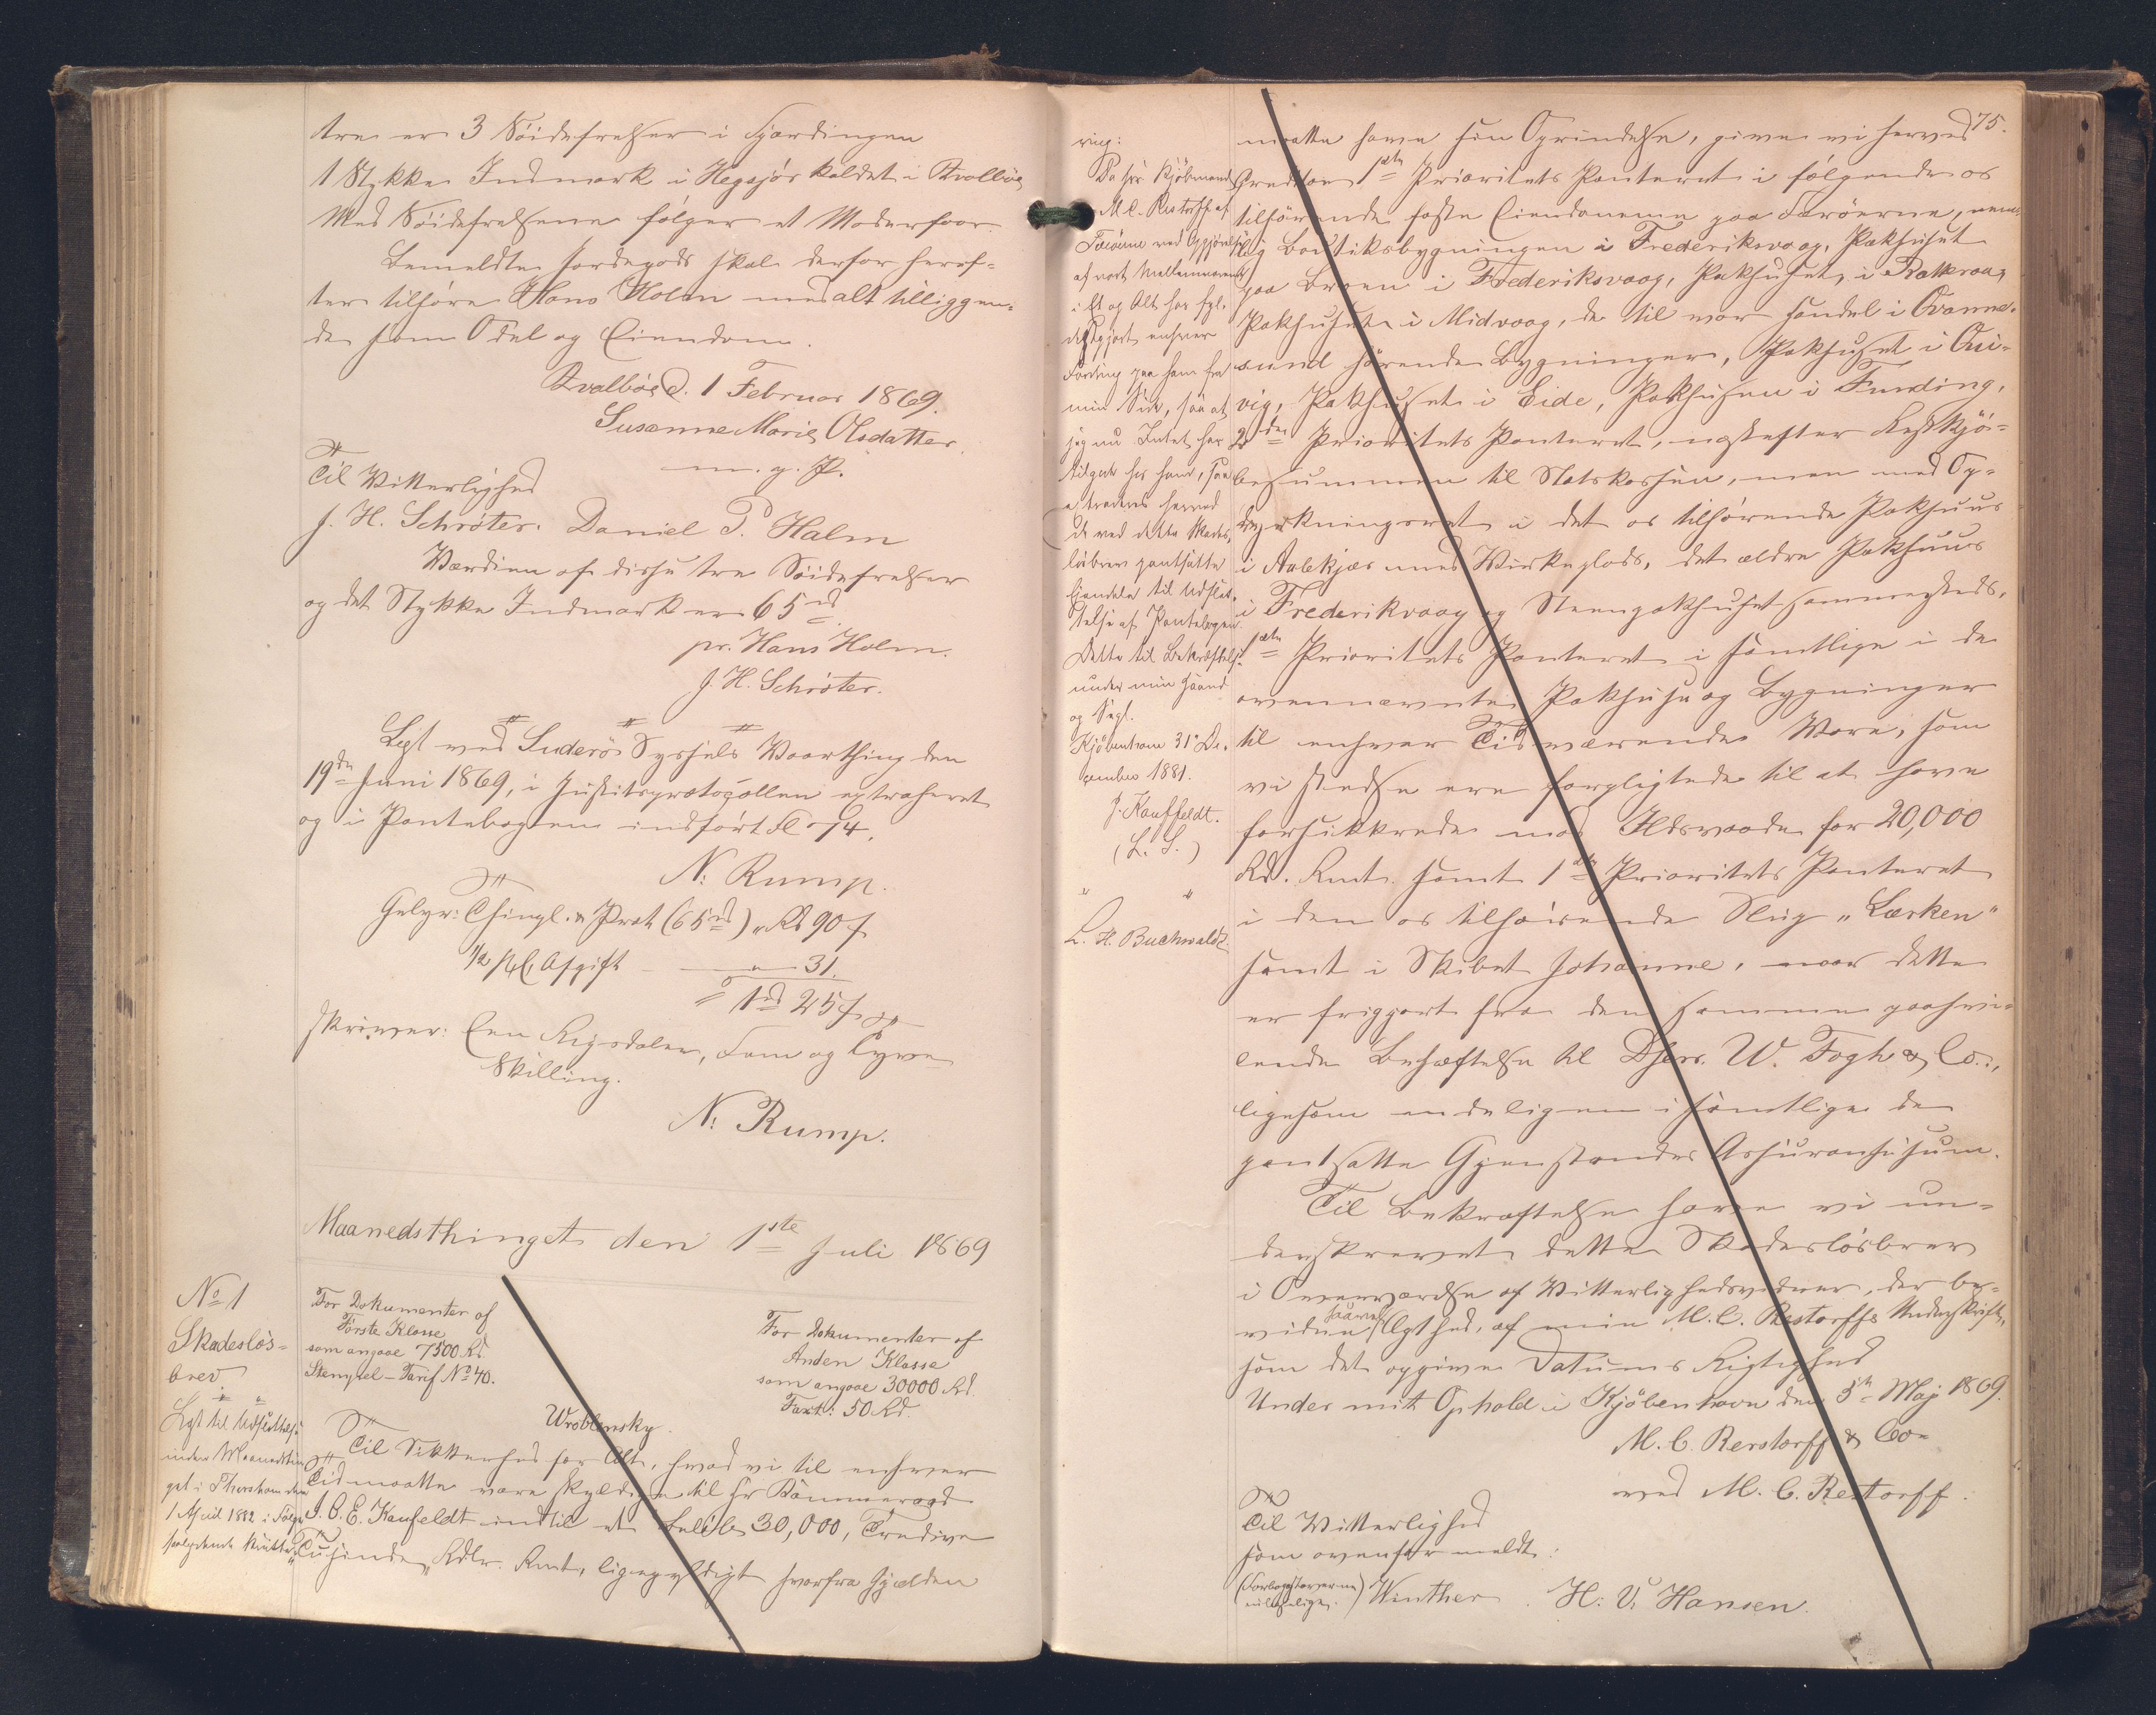 tre er 3 Söidefrelser i Fjerdingen
1 Stykke Indmark i Hegsjör kaldet i Kvalböe
Med Söidefrelserne følger et Moderfaar.
Bemeldte Jordegods skal derfor heref-
ter tilhøre Hans Holm med alt tilliggen-
de som Odel og Eiendom.
Kvalböe d. 1 Februar 1869.
Susanne Marie Olsdatter
m. g. P.
Til Vitterlighed
J. H. Schröter. Daniel P. Halm
Værdien af disse tre Söidefrelser
og det Stykke Indmark er 65 rd
pr. Hans Holm.
J. H. Schröter.
Læst ved Suderö Syssels Vaarthing den
19de Juni 1869, i Justitsprotocollen extraheret
og i Pantebogen indført Fol 74.
N: Rump.
Gebyr: Thingl. & Prot (65 rd) " Rd 90 s
1/2 pCt Afgift — " — 31.
= 1 rd 25 s
skriver: Een Rigsdaler, Fem og Tyve
Skilling.
N: Rump.
Maanedsthinget den 1ste Juli 1869
No 1
Skadeslös-
brev
Læst til Udslettelse
under Maanedsthin-
get i Thorshavn den
1 April 1882 i Følge
saalydende Kvitte-
For Dokumenter af
Første Klasse
som angaae 7500 Rd.
Stempel-Tarif No 40.
For Dokumenter af
Anden Klasse
som angaae 30000 Rd.
Taxt: 50 Rd.
Wroblensky.
Til Sikkerhed for Alt, hvad vi til enhver
Tid maatte være skyldige til Hr Kammerraad
J. C. E. Kaufeldt indtil et Beløb 30,000, Tredive
Tusinde, Rdlr. Rmt, ligegyldigt hvorfra Gjælden
75.
ring:
Da Hr. Kjöbmand
M. C. Restorff af
Færöerne ved Opgjörelse
af vort Mellemværende
i Et og Alt har fyl-
destgjort enhver
Fordring paa ham fra
min Side, saa at
jeg nu Intet har
tilgode hos ham, saa
extraderes herved
de ved dette Skades-
løsbrev pantsatte
Eiendele til Udslet-
telse af Pantebogen.
Dette til Bekræftelse
under min Haand
og Segl.
Kjöbenhavn 31 De-
cember 1881.
J. Kauffeldt.
(L. S.)
L. H. Buchwaldt
maatte have sin Oprindelse, give vi herved
Creditor 1ste Prioritets Panteret i følgende os
tilhørende faste Eiendomme paa Færöerne, nem-
lig Boutiksbygningen i Frederiksvaag, Pakhuset
paa Broen i Frederiksvaag, Pakhuset i Ratkvaag
Pakhuset i Midvaag, de til vor Handel i Qvanne-
sund hørende Bygninger, Pakhuset i Qui-
vig, Pakhuset i Eide, Pakhusene i Funding,
2den Prioritets Panteret, næstefter Restkjö-
besummen til Statskassen, men med Op-
rykningsret i det os tilhørende Pakhuus
i Aalekjær med Virkeplads, det ældre Pakhuus
i Frederikvaag og Steenpakhuset sammesteds,
1ste Prioritets Panteret i samtlige i de
ovennævnte Pakhuse og Bygninger
til enhver Tid værende Vare, som
vi stedse ere forpligtede til at have
forsikkrede mod Ildsvaade for 20,000
Rd. Rmt. samt 1ste Prioritets Panteret
i den os tilhørende Slup "Lærken"
samt i Skibet Johanne, naar dette
er frigjort fra den samme paahvi-
lende Behæftelse til DHrr. W. Fogh & Co.,
ligesom endeligen i samtlige de
pantsatte Gjenstandes Assurancesum.
Til Bekræftelse have vi un-
derskrevet dette Skadeslösbrev
i Overværelse af Vitterlighedsvidner, der be-
vidne saavel Ægthed, af min M. C. Restorffs Underskrift,
som det opgivne Datums Rigtighed
Under mit Ophold i Kjöbenhavn den 5te Maj 1869.
M. C. Rerstorff & Co
ved M. C. Restorff.
Til Vitterlighed
som ovenfor meldt:
(Forbogstaverne
ulæselige.) Winther. H: V: Hansen.